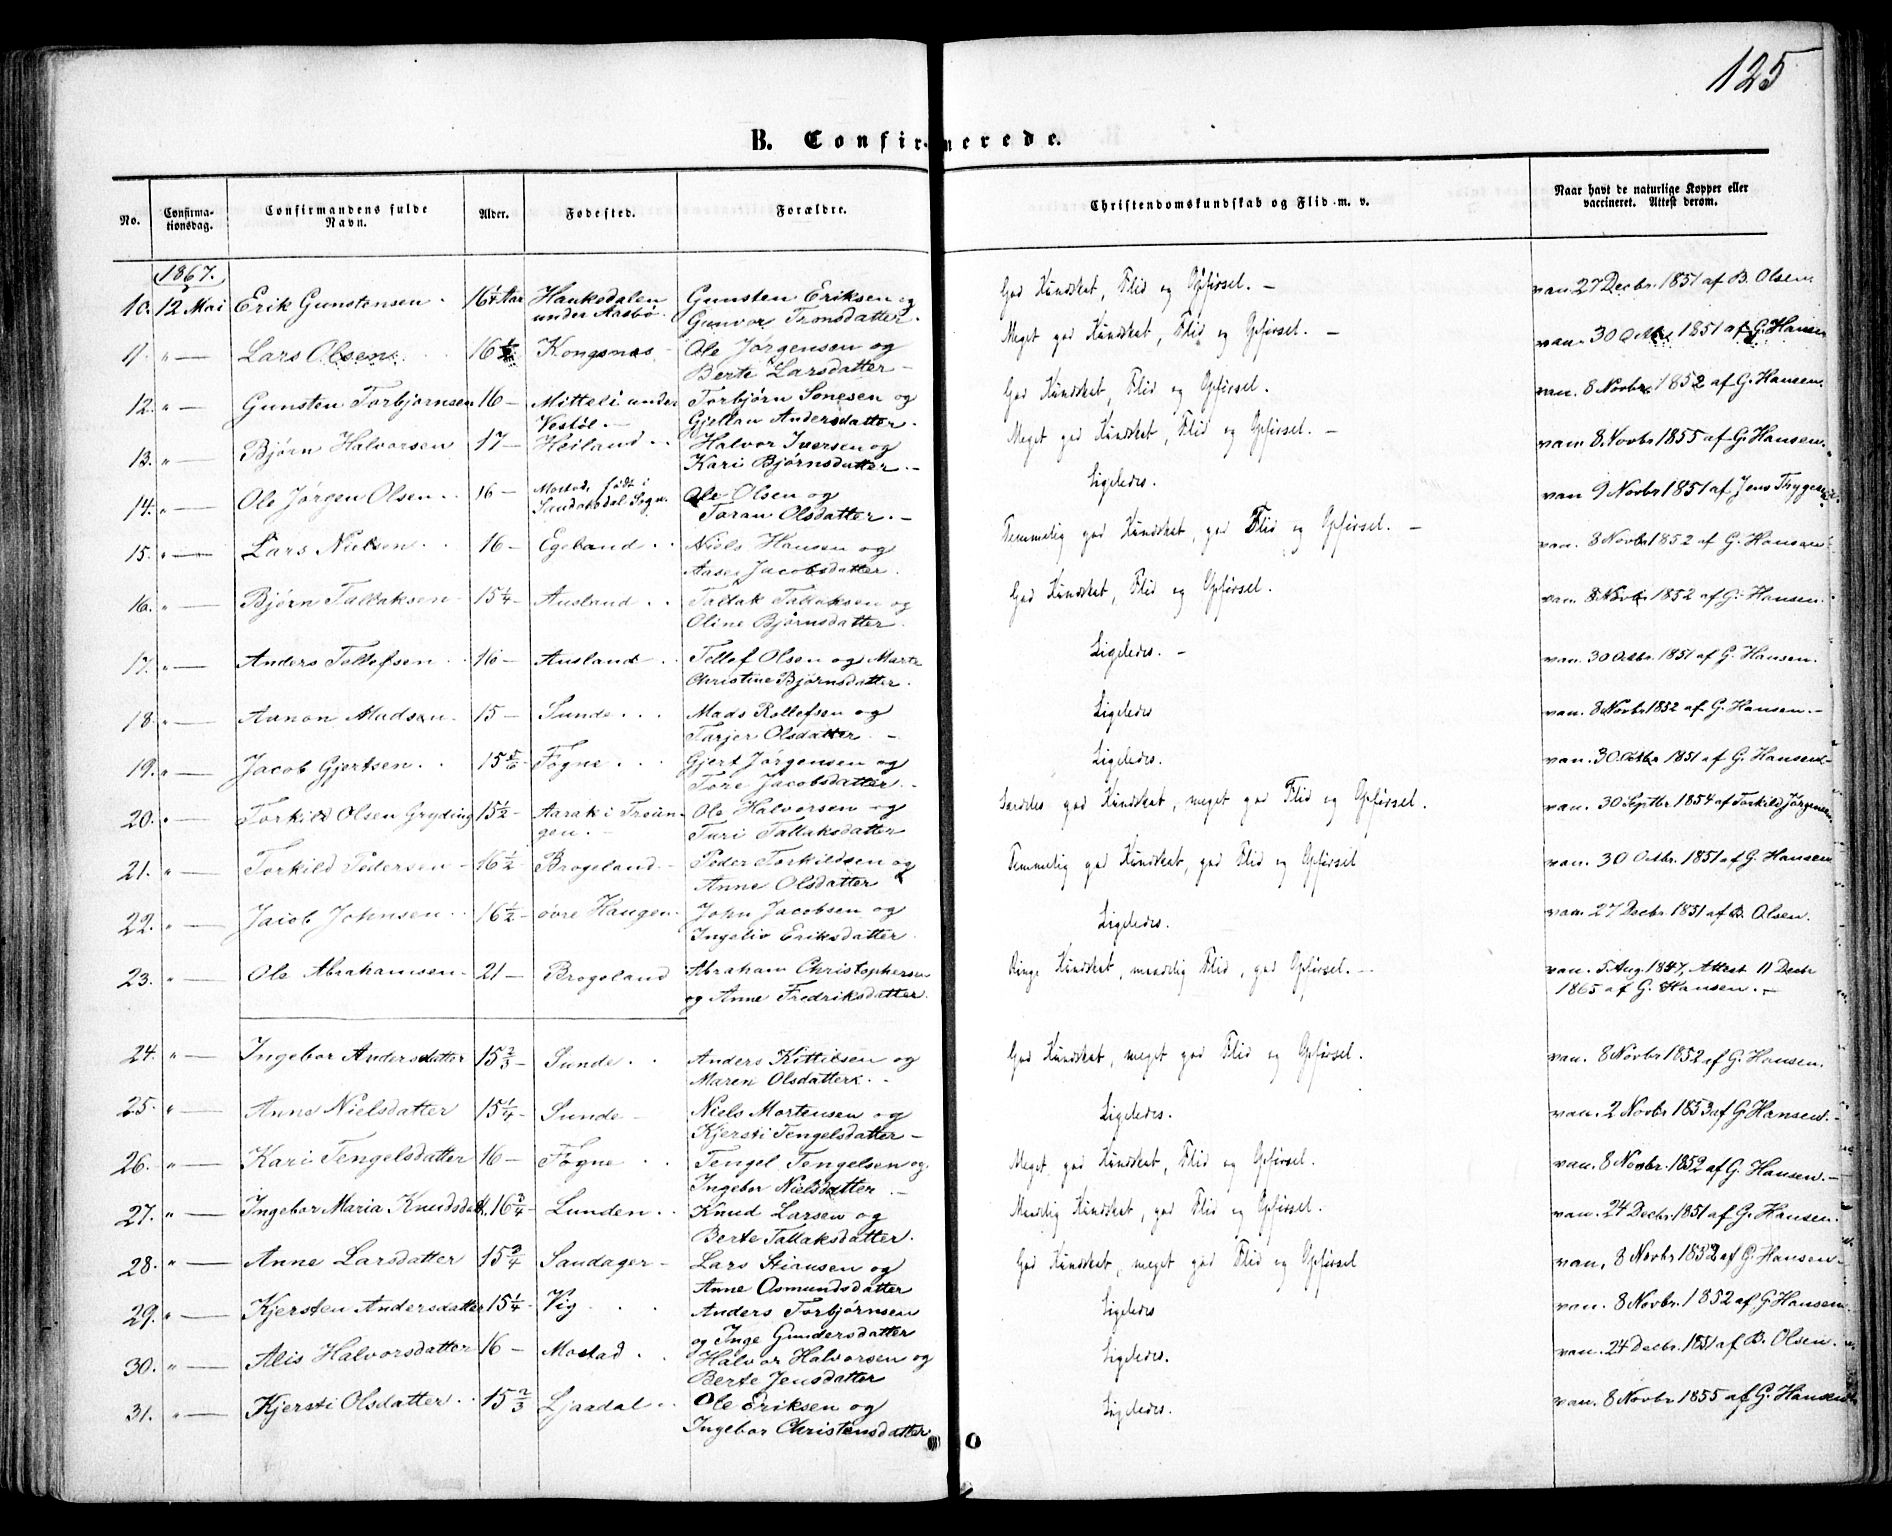 125
B. Confirmerede.
No. Confirmationsdag. Confirmandens fulde Navn. Alder. Fødested. Forældre. Christendomskundskab og Flid m. v. Naar havt de naturlige Kopper eller vaccineret. Attest derom.
1867.
10. 12 Mai Erik Gunstensen 16 1/4 Aar Haukedalen under Aasbø. Gunsten Eriksen og Gunvor Tronsdatter. God Kundskab, Flid og Opførsel. — van. 27 Decbr. 1851 af B. Olsen.
11. " — Lars Olsen. 16 Kongsnæs Ole Jørgensen og Berte Larsdatter — Meget god Kundskab, Flid og Opførsel. — van. 30 Octbr. 1851 af G. Hansen
12. " — Gunsten Torbjørnsen 16 — Mitteli under Vestøl. — Torbjørn Sonesen og Gjellau Andersdatter. God Kundskab, Flid og Opførsel. van. 8 Novbr. 1852 af G. Hansen.
13. " — Bjørn Halvorsen 17 — Heiland Halvor Iversen og Kari Bjørnsdatter. — Meget god Kundskab, Flid og Opførsel. — van. 8 Novbr 1855 af G. Hansen.
14. " — Ole Jørgen Olsen 16 — Mostad, født i Sandøkedal Sogn. Ole Olsen og Taran Olsdatter. — Ligeledes. van. 9 Novbr 1851 af Jens Trygesen
15. " — Lars Nielsen 16 — Egeland Niels Hansen og Aase Jacobsdatter. Temmelig god Kundskab, god Flid og Opførsel. — van. 8 Novbr. 1852 af G. Hansen
16. " — Bjørn Tallaksen 15 1/4 — Ausland Tallak Tallaksen og Oline Bjørnsdatter. God Kundskab, Flid og Opførsel. van. 8 Novbr 1852 af G. Hansen.
17. " — Anders Tellefsen 16 — Ausland Tellef Olsen og Marte Christine Bjørnsdatter. Ligeledes. — van. 30 Octbr. 1851 af G. Hansen.
18. " — Aanon Madsen. 15 — Sunde Mads Rollefsen og Tarjer Olsdatter. — Ligeledes van. 8 Novbr 1852 af G. Hansen. —
19. " — Jacob Gjertsen 15 5/6 Fogne Gjert Jørgensen og Tore Jacobsdatter. Ligeledes. van. 30 Octbr 1851 af G. Hansen.
20. " — Torkild Olsen Gryting 15 1/2 — Aarak i Treungen. — Ole Halvorsen og Turi Tallaksdatter Særdeles god Kundskab, meget god Flid og Opførsel. van. 30 Septbr. 1854 af Torkild Jørgensen
21. " — Torkild Pedersen — 16 1/2 — Brogeland — Peder Torkildsen og Anne Olsdatter Temmelig god Kundskab, god Flid og Opførsel van. 30 Octbr. 1851 af G. Hansen
22. " — Jacob Johnsen 16 1/2 — øvre Haugen. John Jacobsen og Ingeliv Eriksdatter. Ligeledes. van. 27 Decbr. 1851 af B. Olsen.
23. " — Ole Abrahamsen — 21 — Brogeland Abraham Christophersen og Anne Fredriksdatter. Ringe Kundskab, maadelig Flid, god Opførsel. — van. 5 Aug. 1847, Attest 11 Decbr 1865 af G. Hansen. —
24. " — Ingebor Andersdatter 15 2/3 — Sunde Anders Kittilsen og Maren Olsdatter. — God Kundskab, meget god Flid og Opførsel. van. 8 Novbr 1852 af G. Hansen.
25. " — Anne Nielsdatter 15 1/4 — Sunde — Niels Mortensen og Kjersti Tengelsdatter — Ligeledes. van. 2 Novbr 1853 af G. Hansen. —
26. " — Kari Tengelsdatter 16 — Fogne Tengel Tengelsen og Ingebor Nielsdatter. — Meget god Kundskab, Flid og Opførsel. van. 8 Novbr. 1852 af G. Hansen. —
27. " — Ingebor Maria Knudsdatt. 16 3/4 — Lunden Knud Larsen og Berte Tallaksdatter. Maadelig Kundskab, god Flid og Opførsel. van. 24 Decbr. 1851 af G. Hansen.
28. " — Anne Larsdatter 15 3/4 Sandager — Lars Stiansen og Anne Osmundsdatter God Kundskab, meget god Flid og Opførsel van. 8 Novbr 1852 af G. Hansen.
29. " — Kjersten Andersdatter 15 1/4 — Vig Anders Torbjørnsen og Inge Gundersdatter Ligeledes van. 8 Novbr. 1852 af G. Hansen.
30. " — Alis Halvorsdatter 16 — Mostad Halvor Halvorsen og Berte Jensdatter Ligeledes. van. 24 Decbr. 1851 af B. Olsen.
31. " — Kjersti Olsdatter 15 2/3 Ljaadal Ole Eriksen og Ingebor Christensdatter Ligeledes. van. 8 Novbr 1855 af G. Hansen